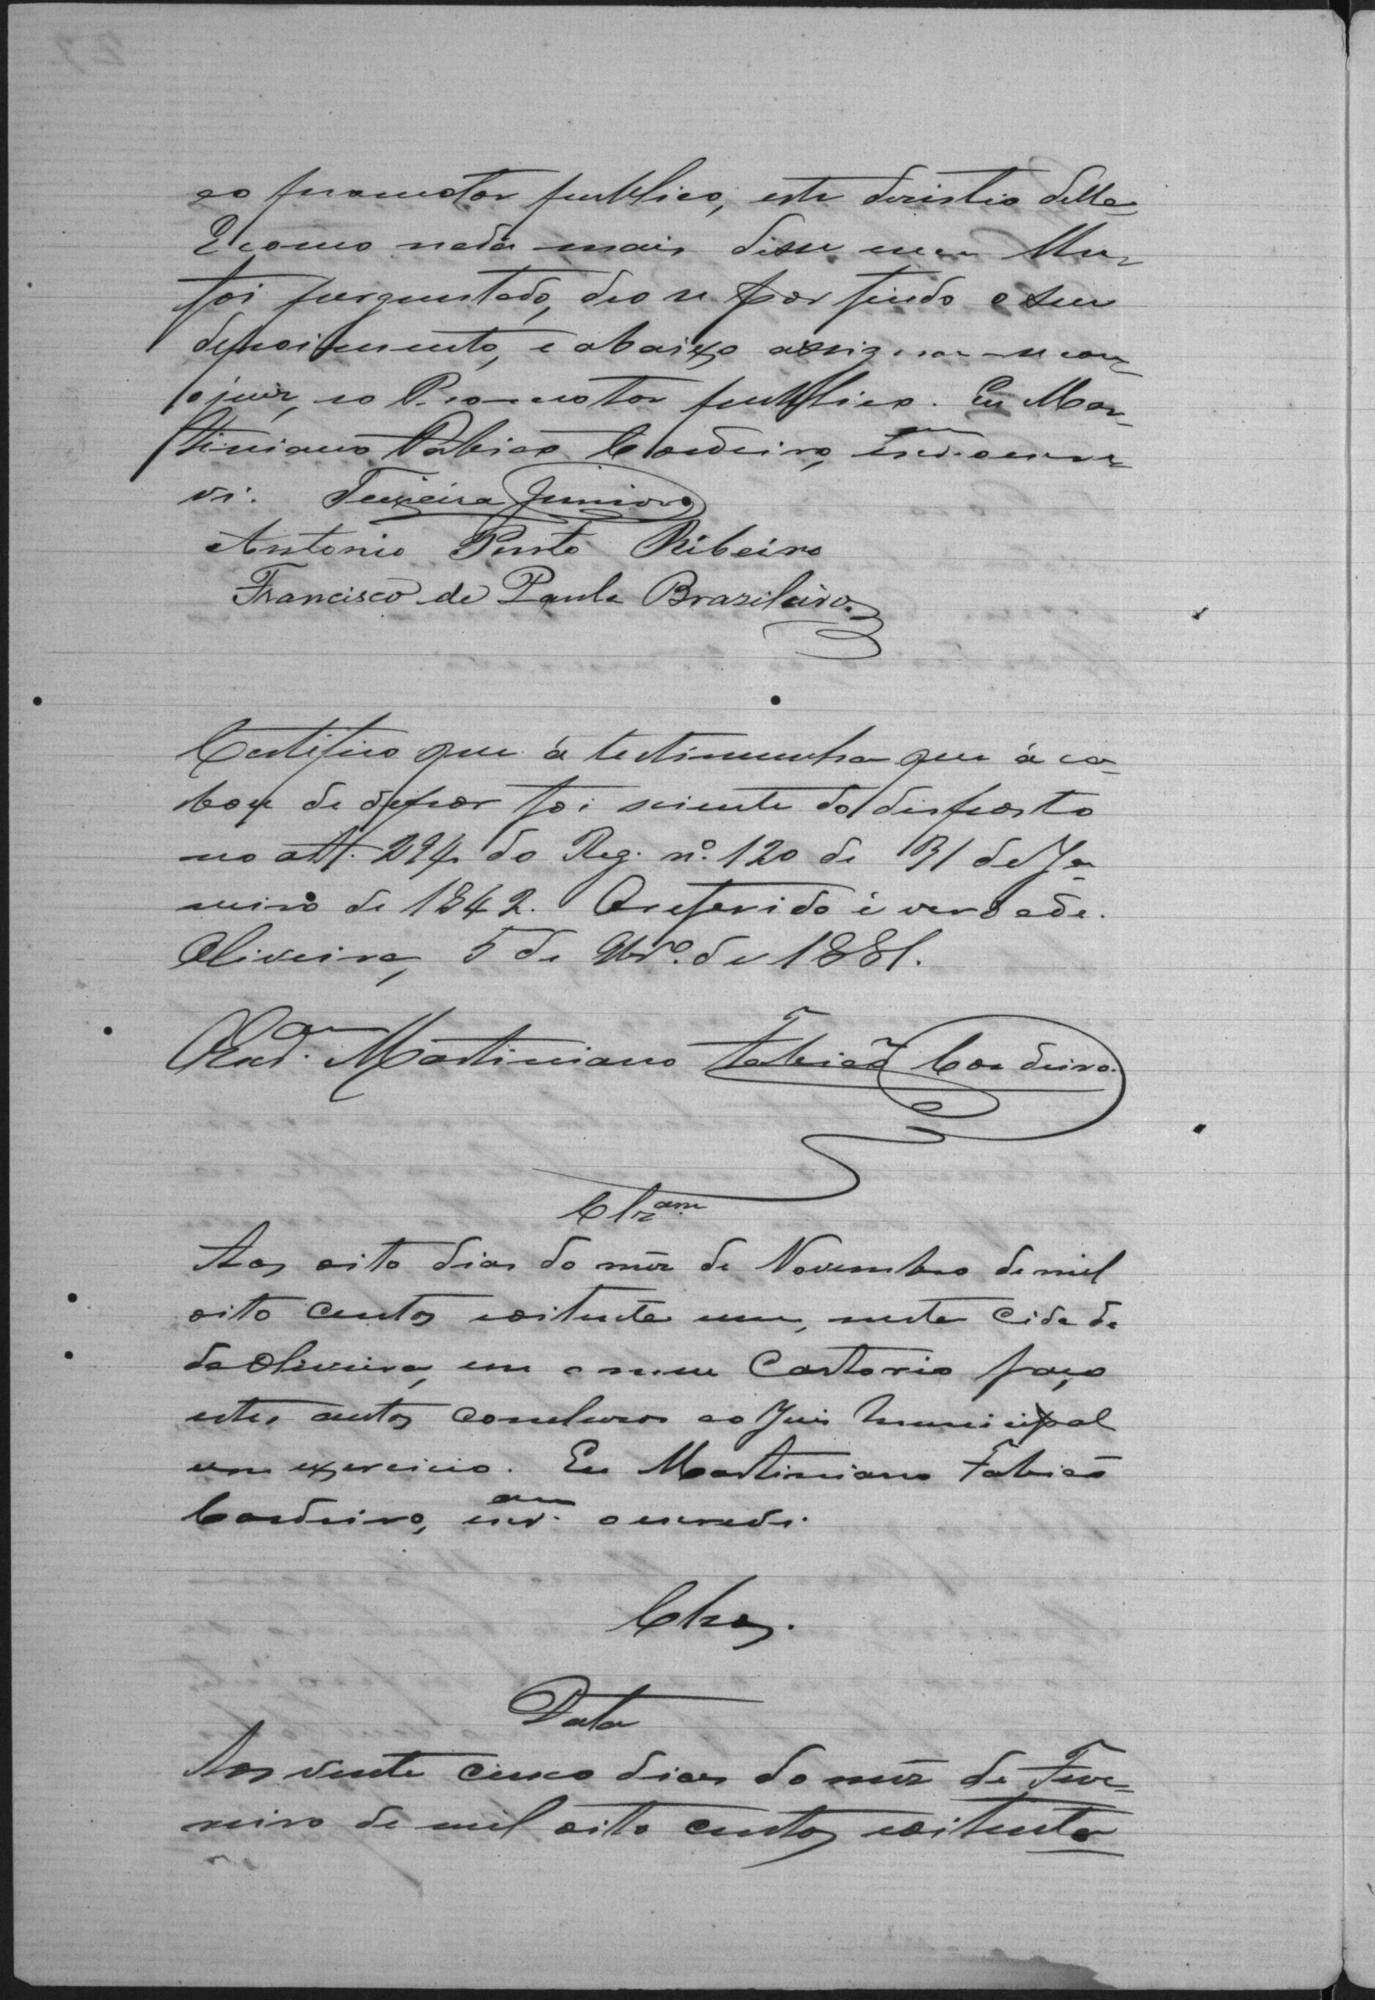 ao promotor publico, este desistio della
E como nada mais disse nem lhe
foi perguntado, deo se por findo o seu
depoimento, e abaixo assignam-se com
o juiz, eo Promotor publico. Eu Mar-
tiniano Fabião Cordeiro, escr.am o escre-
vi. Teixeira Junior
Antonio Pinto Ribeiro
Francisco de Paula Brazileiro.
Certifico que á testimunha que á ca-
bou de depor foi sciente do disposto
no art. 294 do Reg. nº. 120 de 31 de Ja-
neiro de 1842. O referido é verdade.
Oliveira, 5 de 9br.º de 1881.
O Escr.am Martiniano Fabião Cordeiro.
Clz.am
Aos oito dias do mêz de Novembro de mil
oito centos e oitenta e um, nesta Cidade
da Oliveira, em o meu Cartorio faço
estes autos concluzos ao Juis Municipal
em exercicio. Eu Martiniano Fabião
Cordeiro, escr.am o escrevi.
Clzos.
Data
Aos vinte cinco dias do mêz de Feve-
reiro de mil oito centos e oitenta